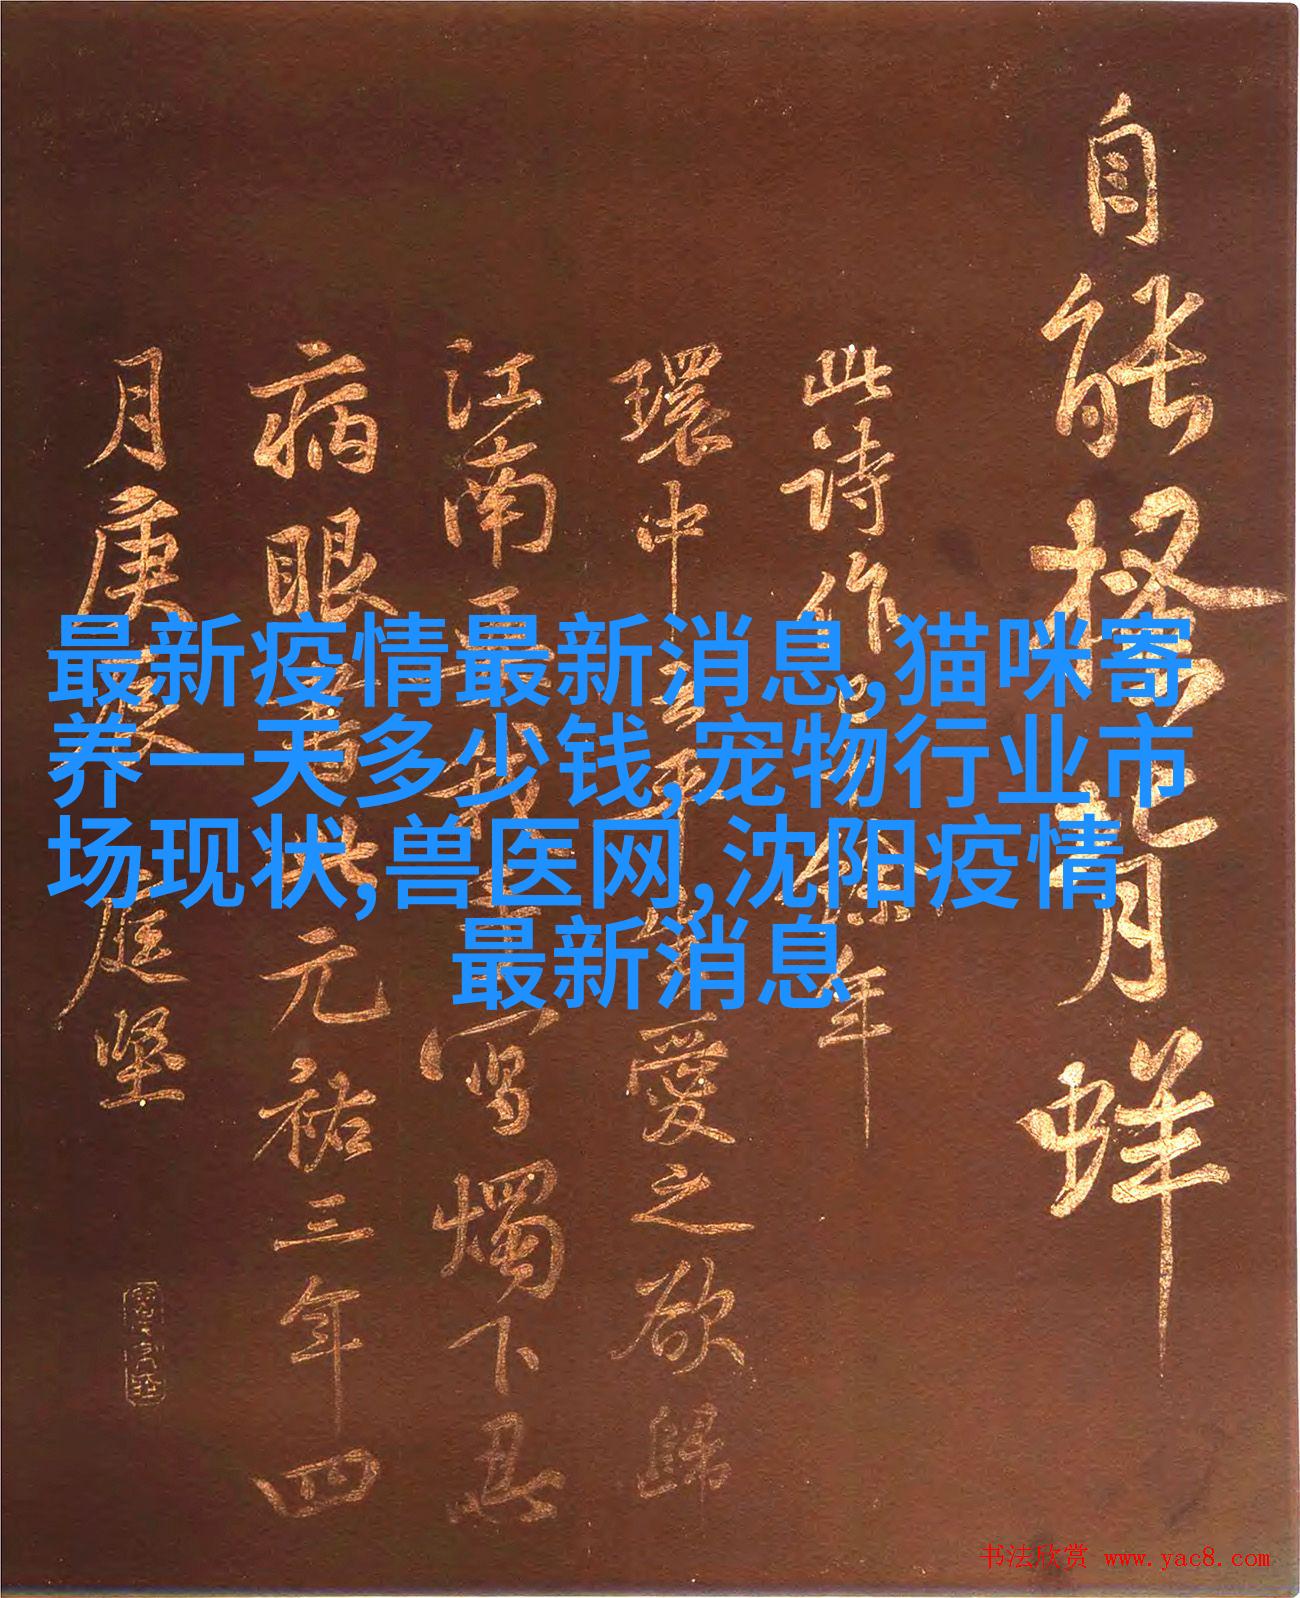 自能
此詩作餘年
環中平生愛之欲歸
江南寫燭下忍
病眼書此元祐三年四
月庚辰庭堅
最新疫情最新消息,猫咪寄
养一天多少钱,宠物行业市
场现状,兽医网,沈阳疫情
最新消息
书法欣赏 www.yac8.com